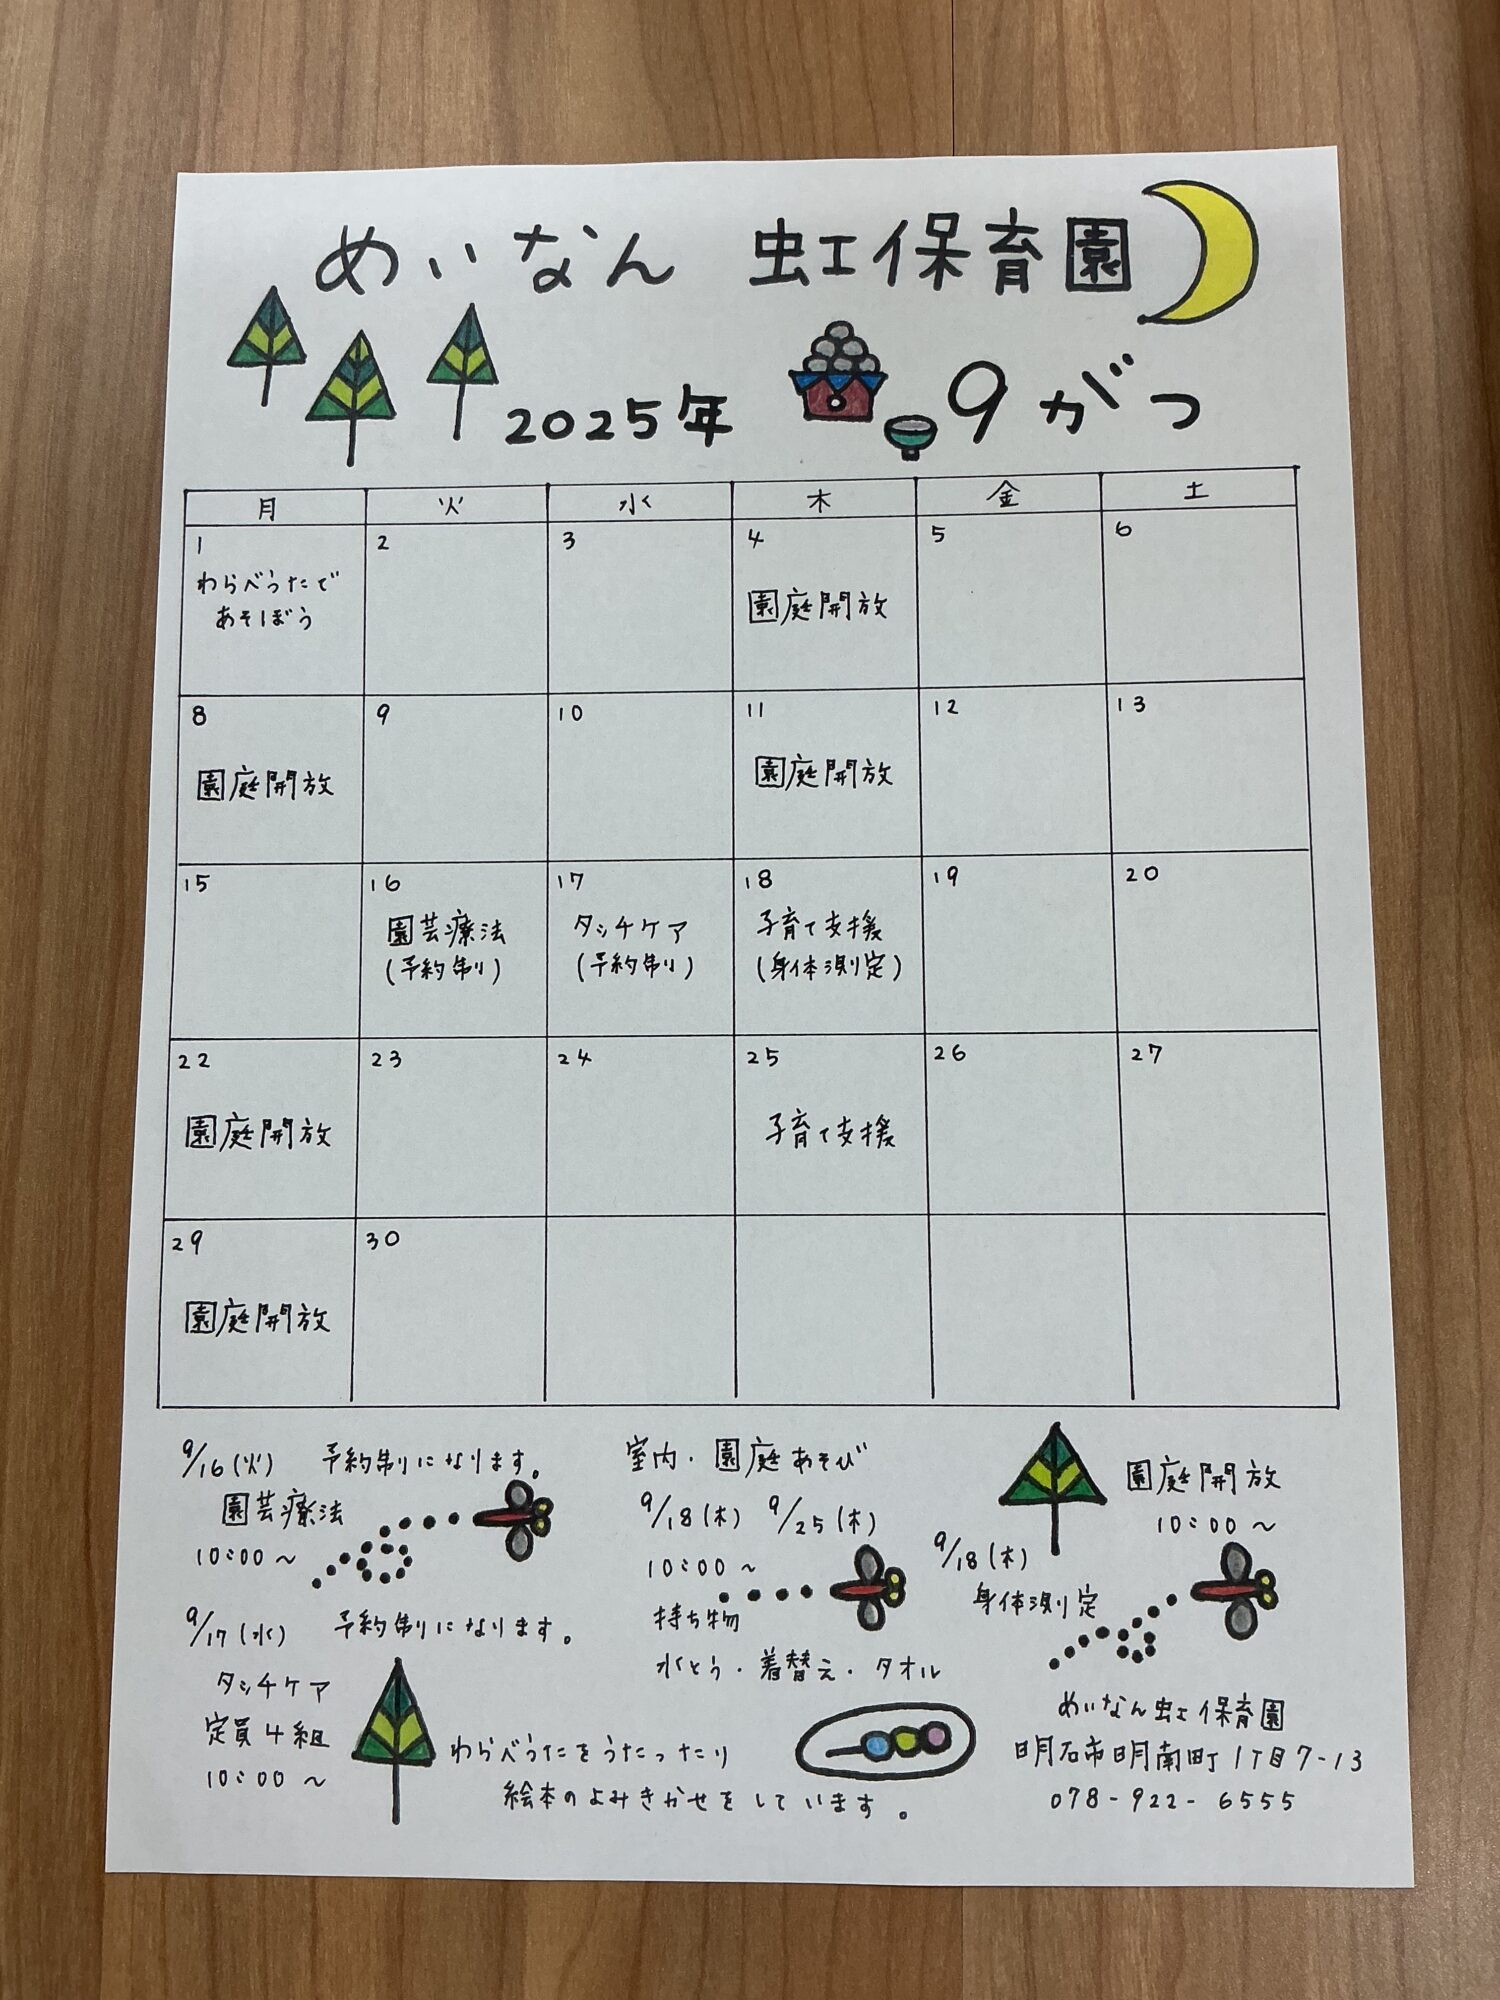 めいなん 虹保育園
2025年 9がつ
月 火 水 木 金 土
1 2 3 4 5 6
わらべうたで
あそぼう
園庭開放
8 9 10 11 12 13
園庭開放 園庭開放
15 16 17 18 19 20
園芸療法 タッチケア 子育て支援
(予約制) (予約制) (身体測定)
22 23 24 25 26 27
園庭開放 子育て支援
29 30
園庭開放
9/16(火) 予約制になります。
園芸療法
10:00～
9/17(水) 予約制になります。
タッチケア
定員4組
10:00～
室内・園庭あそび
9/18(木) 9/25(木)
10:00～
持ち物
水とう・着替え・タオル
園庭開放
10:00～
9/18(木)
身体測定
わらべうたをうたったり
絵本のよみきかせをしています。
めいなん虹保育園
明石市明南町1丁目7-13
078-922-6555